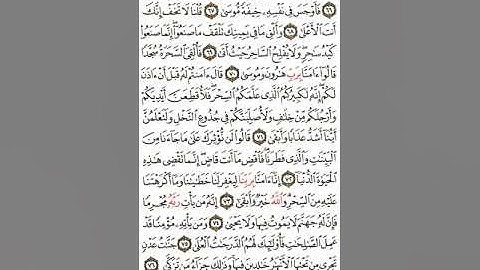 ٦٦ فَأَوْجَسَ فِى نَفْسِهِۦ خِيفَةً مُّوسَىٰ ٦٧ قُلْنَا لَا تَخَفْ إِنَّكَ
أَنتَ ٱلْأَعْلَىٰ ٦٨ وَأَلْقِ مَا فِى يَمِينِكَ تَلْقَفْ مَا صَنَعُوٓا۟ إِنَّمَا صَنَعُوا۟
كَيْدُ سَٰحِرٍ وَلَا يُفْلِحُ ٱلسَّاحِرُ حَيْثُ أَتَىٰ ٦٩ فَأُلْقِىَ ٱلسَّحَرَةُ سُجَّدًا
قَالُوٓا۟ ءَامَنَّا بِرَبِّ هَٰرُونَ وَمُوسَىٰ ٧٠ قَالَ ءَامَنتُمْ لَهُۥ قَبْلَ أَنْ ءَاذَنَ
لَكُمْ إِنَّهُۥ لَكَبِيرُكُمُ ٱلَّذِى عَلَّمَكُمُ ٱلسِّحْرَ فَلَأُقَطِّعَنَّ أَيْدِيَكُمْ
وَأَرْجُلَكُم مِّنْ خِلَٰفٍ وَلَأُصَلِّبَنَّكُمْ فِى جُذُوعِ ٱلنَّخْلِ وَلَتَعْلَمُنَّ
أَيُّنَآ أَشَدُّ عَذَابًا وَأَبْقَىٰ ٧١ قَالُوا۟ لَن نُّؤْثِرَكَ عَلَىٰ مَا جَآءَنَا مِنَ
ٱلْبَيِّنَٰتِ وَٱلَّذِى فَطَرَنَا فَٱقْضِ مَآ أَنتَ قَاضٍ إِنَّمَا تَقْضِى هَٰذِهِ
ٱلْحَيَوٰةَ ٱلدُّنْيَآ ٧٢ إِنَّآ ءَامَنَّا بِرَبِّنَا لِيَغْفِرَ لَنَا خَطَٰيَٰنَا وَمَآ أَكْرَهْتَنَا
عَلَيْهِ مِنَ ٱلسِّحْرِ وَٱللَّهُ خَيْرٌ وَأَبْقَىٰٓ ٧٣ إِنَّهُۥ مَن يَأْتِ رَبَّهُۥ مُجْرِمًا
فَإِنَّ لَهُۥ جَهَنَّمَ لَا يَمُوتُ فِيهَا وَلَا يَحْيَىٰ ٧٤ وَمَن يَأْتِهِۦ مُؤْمِنًا قَدْ
عَمِلَ ٱلصَّٰلِحَٰتِ فَأُو۟لَٰٓئِكَ لَهُمُ ٱلدَّرَجَٰتُ ٱلْعُلَىٰ ٧٥ جَنَّٰتُ عَدْنٍ
تَجْرِى مِن تَحْتِهَا ٱلْأَنْهَٰرُ خَٰلِدِينَ فِيهَا وَذَٰلِكَ جَزَآءُ مَن تَزَكَّىٰ ٧٦